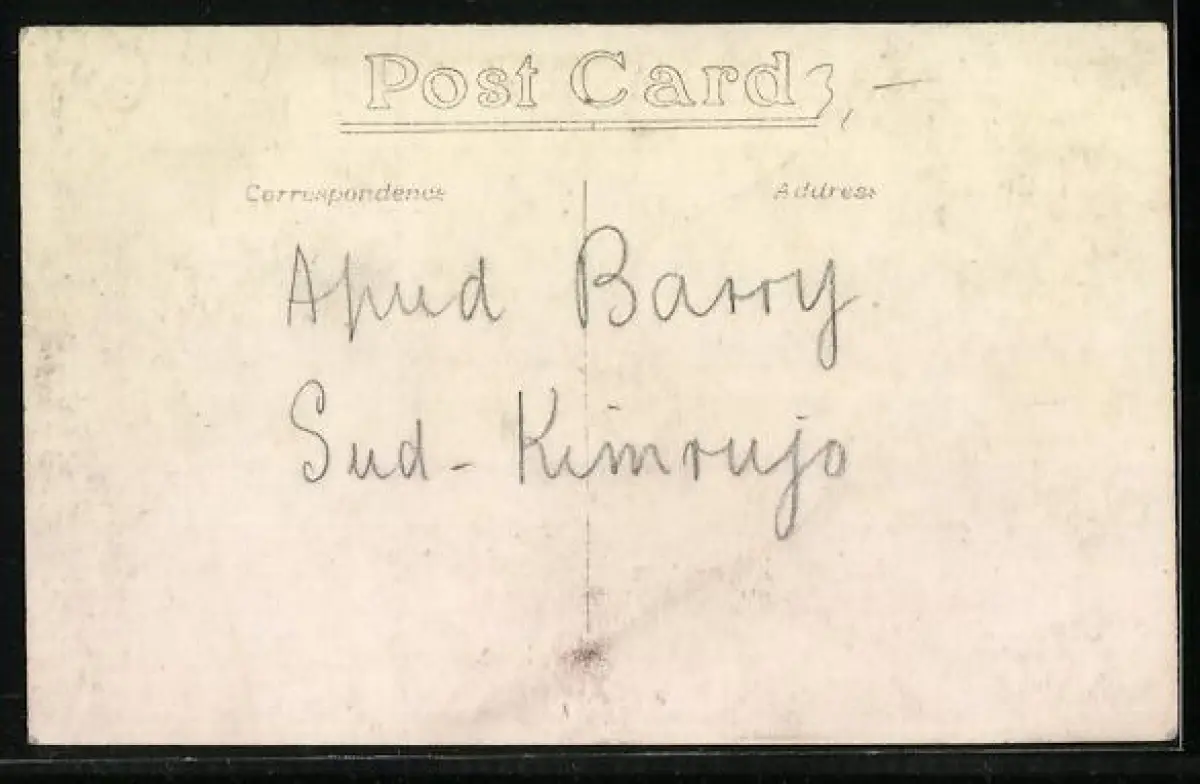 Post Card
3,—
Correspondence
Address
Apud Barry
Sud-Kimrujo